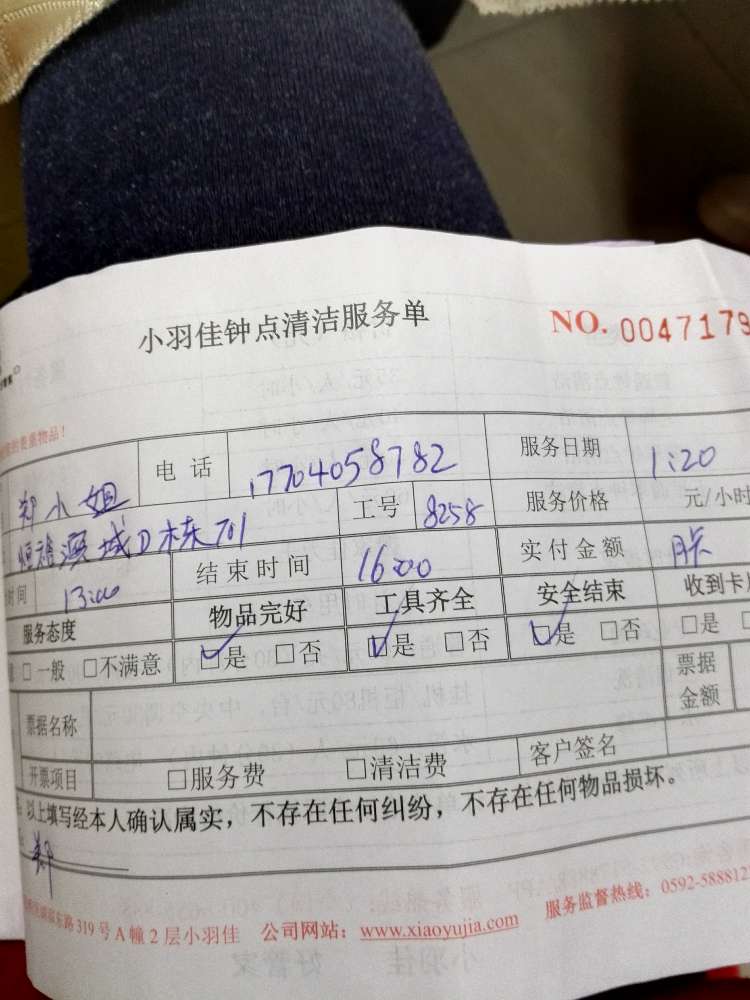 小羽佳钟点清洁服务单 NO. 0047179
贵重物品！
郑小姐 电话 17704058782 服务日期 1:20
恒禧滨城D栋701 工号 8258 服务价格 元/小时
时间 13:00 结束时间 16:00 实付金额 卡
服务态度 物品完好 工具齐全 安全结束 收到卡
□一般 □不满意 □是 □否 □是 □否 □是 □否 □是
票据名称 票据金额
开票项目 □服务费 □清洁费 客户签名
以上填写经本人确认属实，不存在任何纠纷，不存在任何物品损坏。
郑
东路319号A幢2层小羽佳 公司网站：www.xiaoyujia.com 服务监督热线：0592-588812